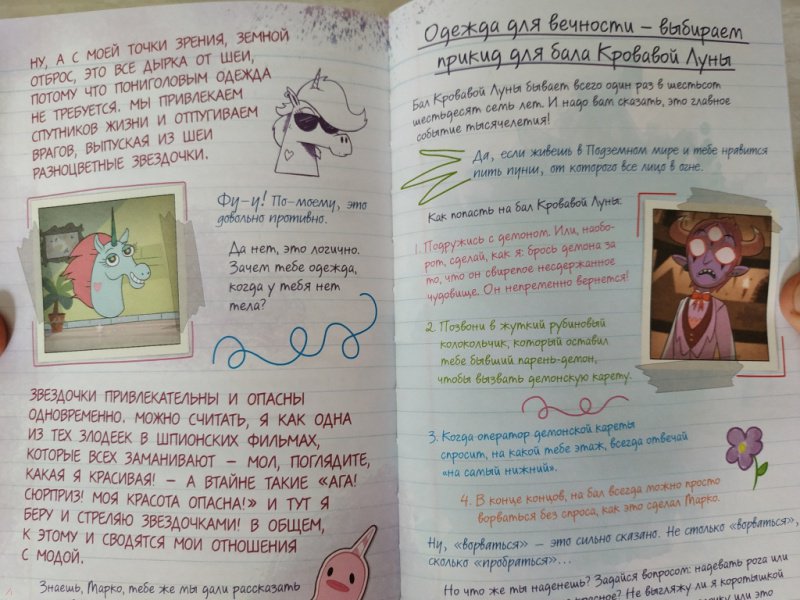 НУ, А С МОЕЙ ТОЧКИ ЗРЕНИЯ, ЗЕМНОЙ
ОТБРОС, ЭТО ВСЕ ДЫРКА ОТ ШЕИ,
ПОТОМУ ЧТО ПОНИГОЛОВЫМ ОДЕЖДА
НЕ ТРЕБУЕТСЯ. МЫ ПРИВЛЕКАЕМ
СПУТНИКОВ ЖИЗНИ И ОТПУГИВАЕМ
ВРАГОВ, ВЫПУСКАЯ ИЗ ШЕИ
РАЗНОЦВЕТНЫЕ ЗВЕЗДОЧКИ.
Фу-у! По-моему, это
довольно противно.
Да нет, это логично.
Зачем тебе одежда,
когда у тебя нет
тела?
ЗВЕЗДОЧКИ ПРИВЛЕКАТЕЛЬНЫ И ОПАСНЫ
ОДНОВРЕМЕННО. МОЖНО СЧИТАТЬ, Я КАК ОДНА
ИЗ ТЕХ ЗЛОДЕЕК В ШПИОНСКИХ ФИЛЬМАХ,
КОТОРЫЕ ВСЕХ ЗАМАНИВАЮТ – МОЛ, ПОГЛЯДИТЕ,
КАКАЯ Я КРАСИВАЯ! – А ВТАЙНЕ ТАКИЕ «АГА!
СЮРПРИЗ! МОЯ КРАСОТА ОПАСНА!» И ТУТ Я
БЕРУ И СТРЕЛЯЮ ЗВЕЗДОЧКАМИ! В ОБЩЕМ,
К ЭТОМУ И СВОДЯТСЯ МОИ ОТНОШЕНИЯ
С МОДОЙ.
Знаешь, Марко, тебе же мы дали рассказать
Одежда для вечности – выбираем
прикид для бала Кровавой Луны
Бал Кровавой Луны бывает всего один раз в шестьсот
шестьдесят семь лет. И надо вам сказать, это главное
событие тысячелетия!
Да, если живешь в Подземном мире и тебе нравится
пить пунш, от которого все лицо в огне.
Как попасть на бал Кровавой Луны:
1. Подружись с демоном. Или, наобо-
рот, сделай, как я: брось демона за
то, что он свирепое несдержанное
чудовище. Он непременно вернется!
2. Позвони в жуткий рубиновый
колокольчик, который оставил
тебе бывший парень-демон,
чтобы вызвать демонскую карету.
3. Когда оператор демонской кареты
спросит, на какой тебе этаж, всегда отвечай
«на самый нижний».
4. В конце концов, на бал всегда можно просто
ворваться без спроса, как это сделал Марко.
Ну, «ворваться» – это сильно сказано. Не столько «ворваться»,
сколько «пробраться»...
Но что же ты наденешь? Задайся вопросом: надевать рога или
красное? Не выгляжу ли я коротышкой
или это